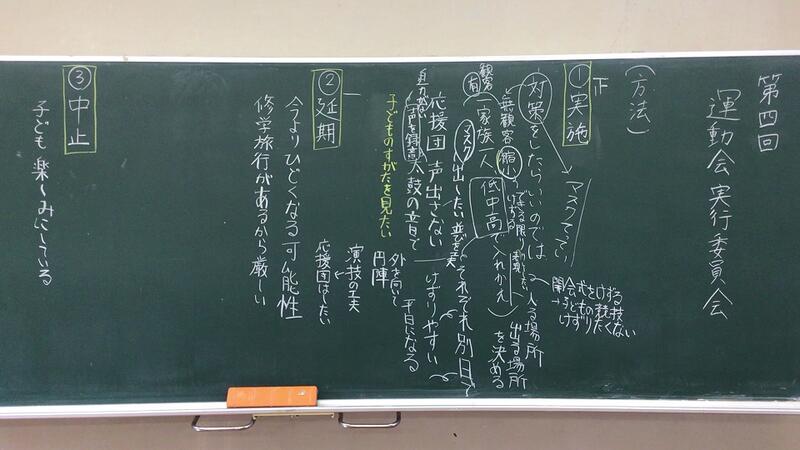 第四回
運動会実行委員会
(方法)
正
①実施
対策をしたらいいのでは
マスクてってい
入る場所
出る場所
を決める
開会式をけずる
子どもの競技
けずりたくない
無観客
縮小
できる限り
けずる
観客
有
一家族一人
低中高で入れかえ
マスク
出したい
それぞれ別日で
応援団 声出さない
けずりやすい
声を録音
太鼓の音で
平日になる
子どものすがたを見たい
外を向いて
円陣
演技の工夫
応援団はしたい
一
②延期
今よりひどくなる可能性
修学旅行があるから厳しい
③中止
子ども楽しみにしている